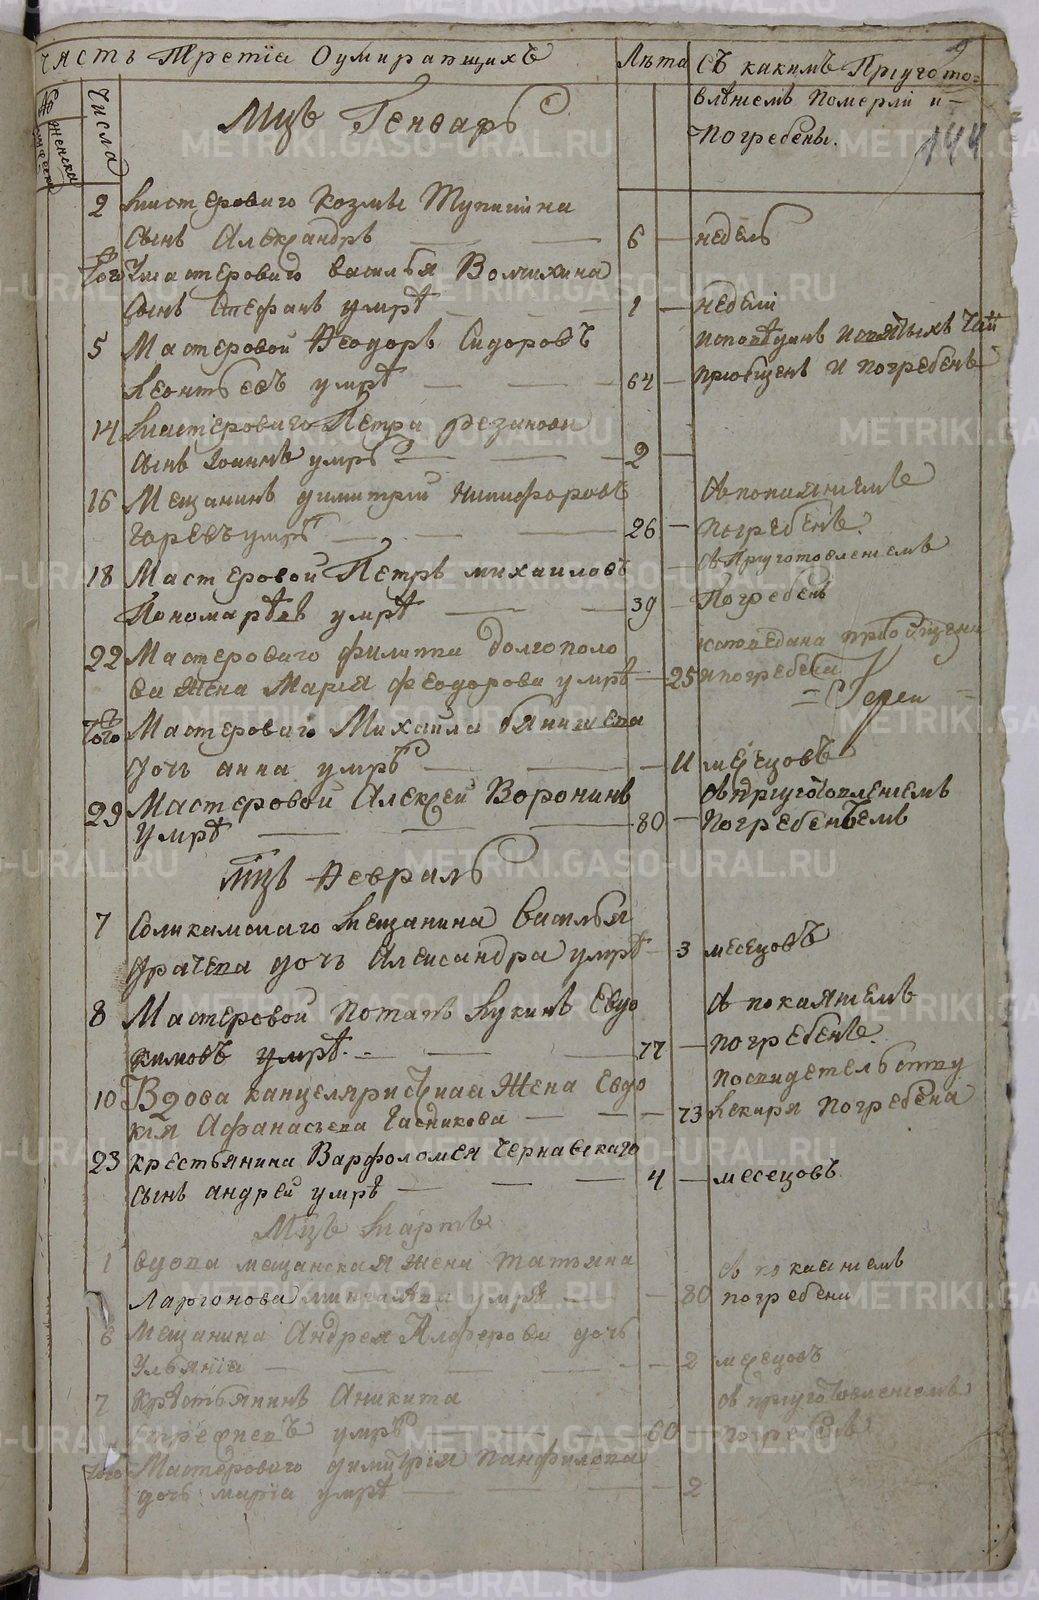 Часть Третїа Оумирающихъ
Лѣта
Съ какимъ Пргугото=
влѣнїемъ померли и
Погребены.
9
144
Числа
женска
Мцъ Генварь
2 Мастероваго Козмы Тупицина
сынъ Александръ 6 недель
Того Ч мастероваго василья Волчихина
сынъ Стефанъ умрѣ 1 недели
5 Мастеровой Ѳеодоръ Сидоровъ
Леонтьевъ умрѣ 64
исповѣдинъ и святыхъ Таи
приобщенъ и погребенъ
14 Мастероваго Петра Резанова
сынъ Iоаннъ умрѣ 2
16 Мещанинъ димитрий Никифоровъ
умрѣ 26
съ покаянїемъ
погребенъ
18 Мастеровой Петръ михаиловъ
Пономаревъ умрѣ 39
съ Пргуготовленїемъ
Погребенъ
22 Мастероваго филиппа Долгополо
ва Жена Марїя Феодорова умрѣ 25
исповедана приобщена
и погребена
= Iереи =
Того Ч Мастероваго Михаила
дочь анна умрѣ 11 месецовъ
29 Мастеровой Алексей Воронинъ
умрѣ 80
съ пргуготовленїемъ
погребенъемъ
Мцъ Ѳевраль
7 Соликамскаго Мещанина Василья
дочь Александра умрѣ 3 месецовъ
8 Мастеровой Потапъ Лукинъ Евдо
кимовъ умрѣ 77
съ покаянїемъ
погребенъ
10 Вдова канцелярискаа Жена Евдо
кїя Афанасъева 73
посвидетельству
Лекаря погребена
23 крестьянина Варфоломея Чернавскаго
сынъ андрей умрѣ 4 месецовъ
Мцъ Мартъ
1 вдова мещанская жена татьяна
Ларионова умрѣ 80
съ покаянїемъ
погребена
6 мещанина Андрея Алферова дочь
Ульянїа 2 месецовъ
7 Крѣстьянинъ Аникита
умрѣ 60
съ пргуготовленїемъ
погребенъ
Того Мастероваго димитрїя Панфилова
дочь марїа умрѣ 2
METRIKI.GASO-URAL.RU